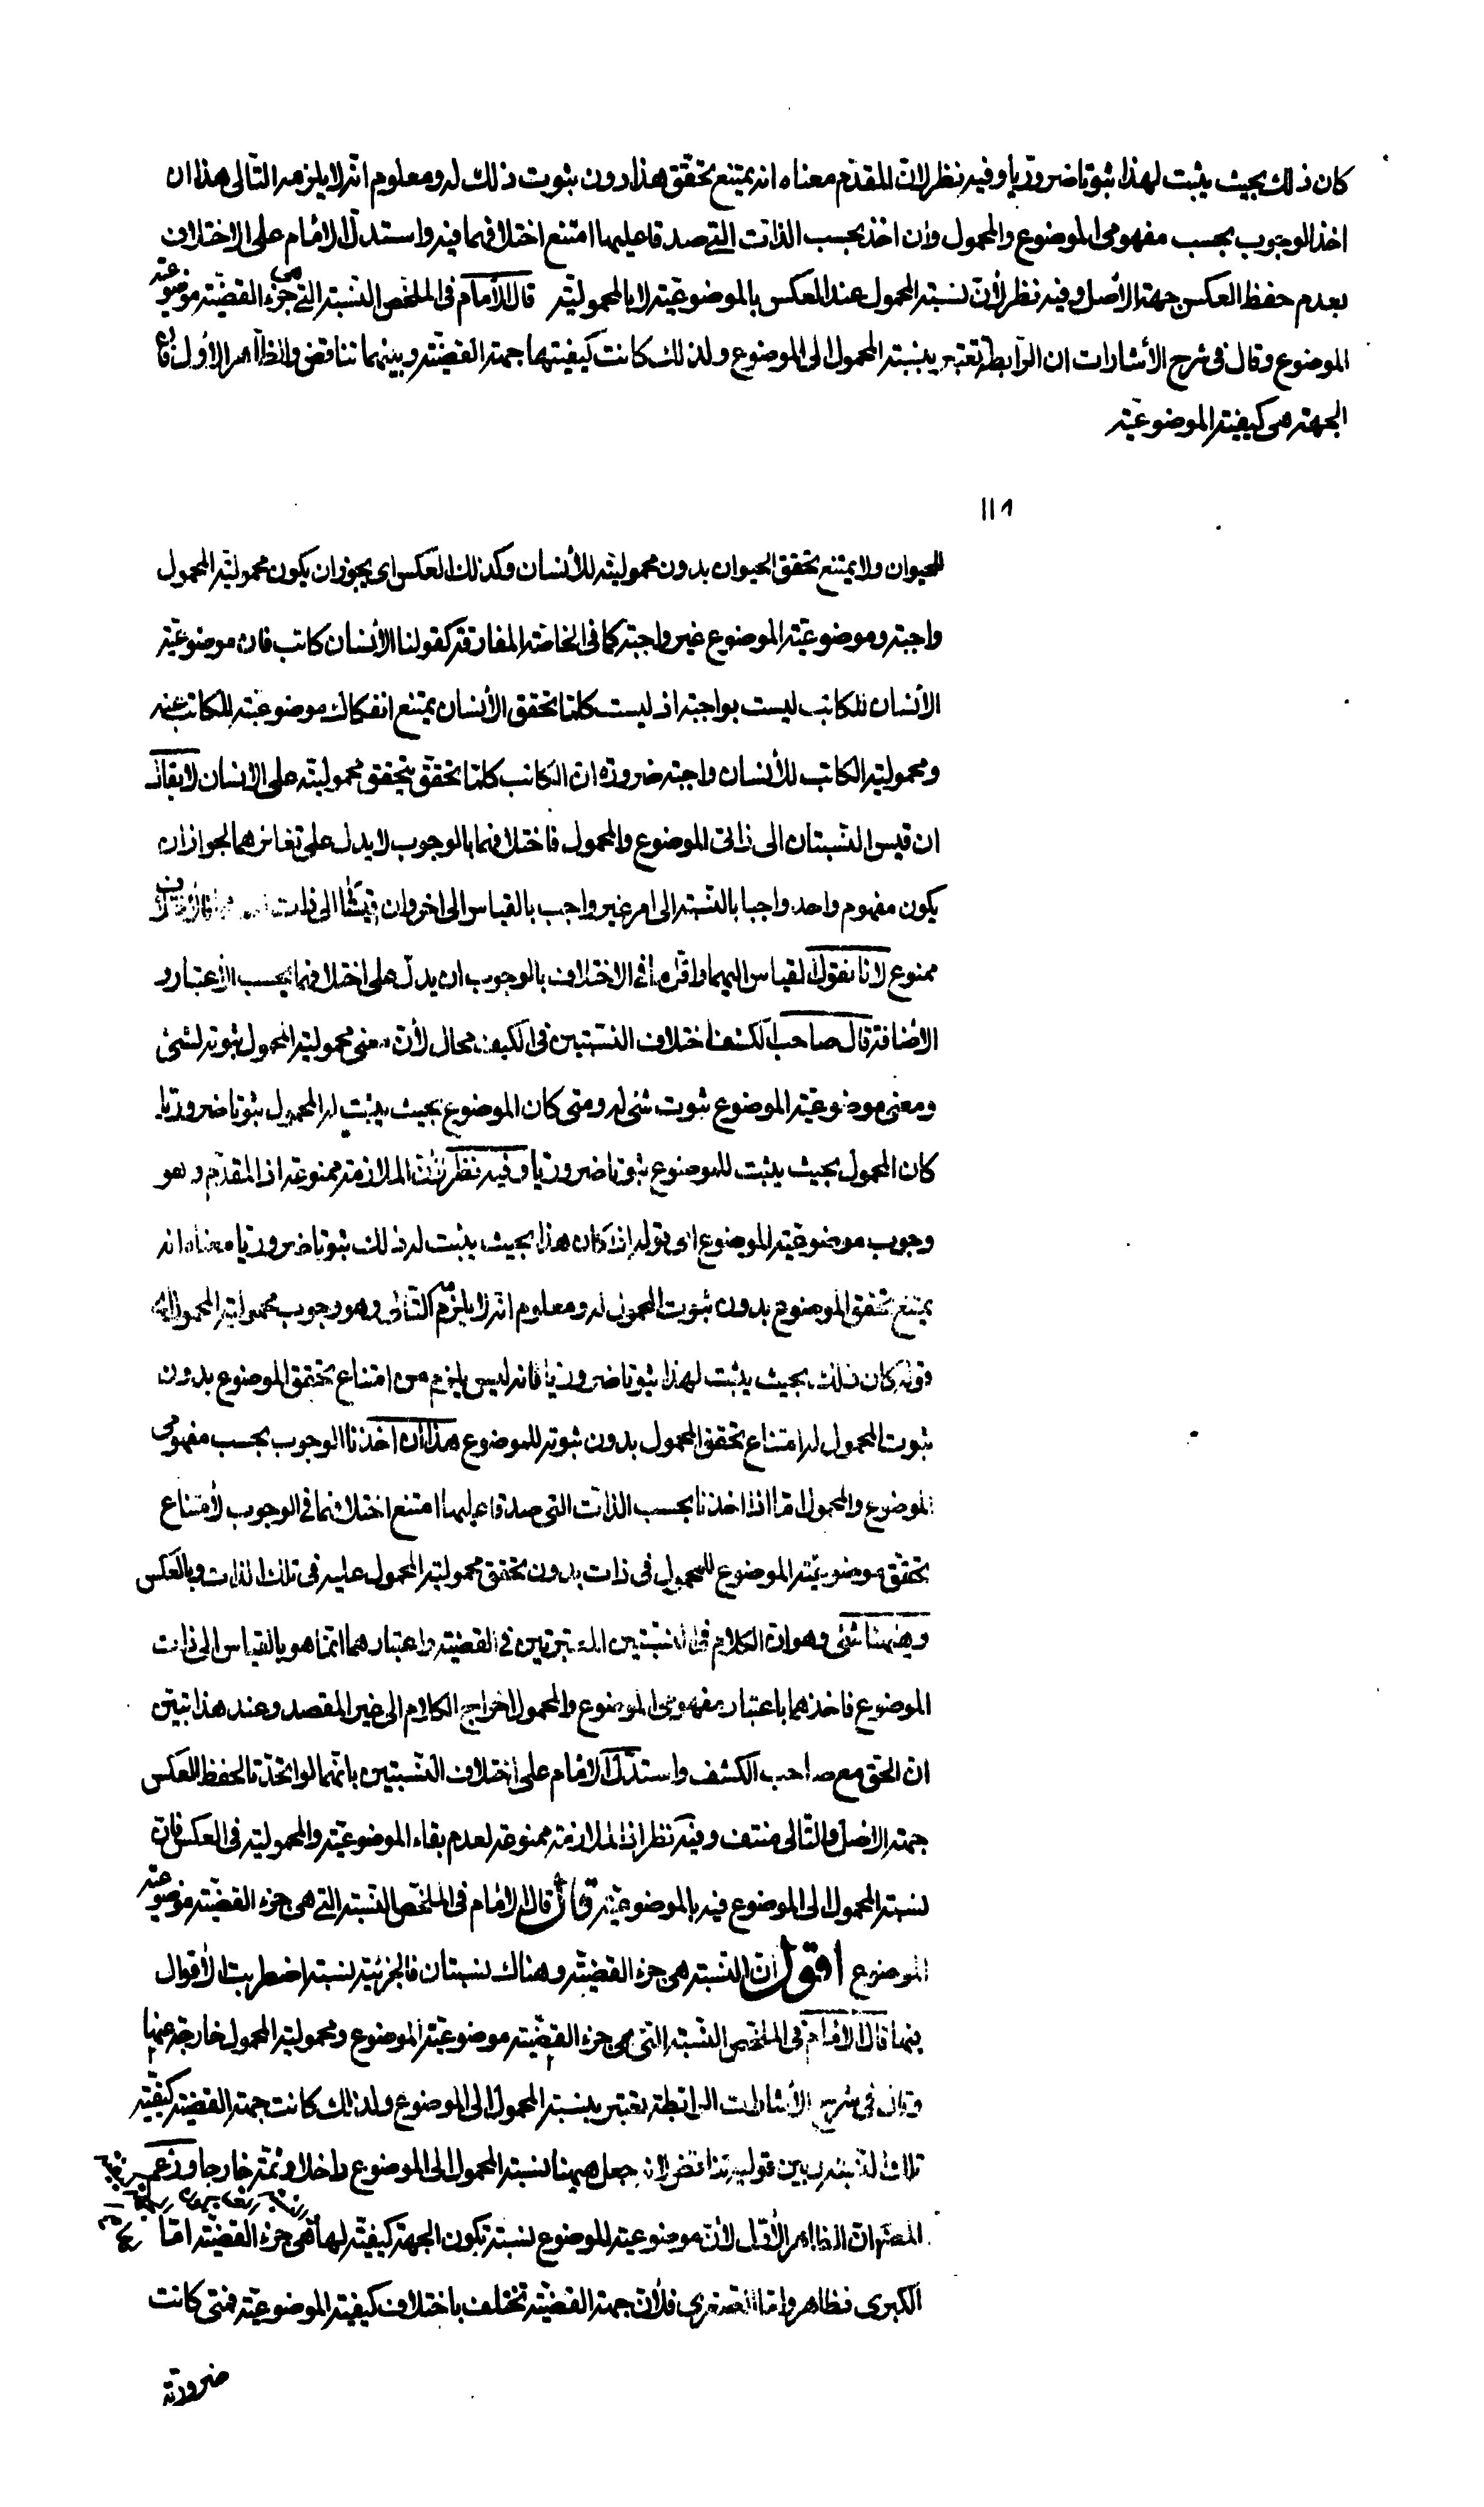 كان ذلك بحيث يثبت لهذا ثبوتا ضروريا وفيه نظر لان المقدم معناه انه يمتنع تحقق هذا دون ثبوت ذلك له ومعلوم انه لا يلزمه التالى هذا ان
اخذ الوجوب بحسب مفهومى الموضوع والمحمول وان اخذ بحسب الذات التى صدقا عليها امتنع اختلافهما فيه واستدل الامام على الاختلاف
بعدم حفظ العكس جهة الأصل وفيه نظر لأن نسبة المحمول عند العكس بالموضوعية لا بالمحمولية قال الأمام فى الملخص النسبة التى هى جزء القضية موضوعية
الموضوع وقال فى شرح الأشارات ان الرابطة تعتبر بنسبة المحمول الى الموضوع ولذلك كانت كيفيتها جهة القضية وبينهما تناقض والظاهر الأول فان
الجهة هى كيفية الموضوعية
١١٨
للحيوان ولا يمتنع تحقق الحيوان بدون محموليته للأنسان وكذلك العكس اى يجوز ان يكون محمولية المحمول
واجبة وموضوعية الموضوع غير واجبة كما فى الخاصة المفارقة كقولنا الأنسان كاتب فان موضوعية
الأنسان للكاتب ليست بواجبة اذ ليست كلما تحقق الأنسان يمتنع انفكاك موضوعيته للكاتب عنه
ومحمولية الكاتب للأنسان واجبة ضرورة ان الكاتب كلما تحقق يتحقق محموليته على الانسان لا يقال
ان قيس النسبتان الى ذاتى الموضوع والمحمول فاختلافهما بالوجوب لا يدل على تغايرهما لجواز ان
يكون مفهوم واحد واجبا بالنسبة الى امر غير واجب بالقياس الى اخر وان قيستا الى ذات فالاختلاف
ممنوع لانا نقول لقياس اليهما واقل ما فى الاختلاف بالوجوب ان يدل على اختلافهما بحسب الأعتبار و
الاضافة قال صاحب الكشف اختلاف النسبتين فى الكيف محال لأن معنى محمولية المحمول ثبوته لشئ
ومعنى موضوعية الموضوع ثبوت شئ له ومتى كان الموضوع بحيث يثبت له المحمول ثبوتا ضروريا
كان المحمول بحيث يثبت للموضوع ثبوتا ضروريا وفيه نظر لأن الملازمة ممنوعة اذ المقدم وهو
وجوب موضوعية الموضوع اى قوله اذا كان هذا بحيث يثبت له ذلك ثبوتا ضروريا معناه انه
يمتنع تحقق الموضوع بدون ثبوت المحمول له ومعلوم انه لا يلزمه التالى وهو وجوب محمولية المحمول اى
قوله كان ذلك بحيث يثبت لهذا ثبوتا ضروريا فانه ليس يلزم من امتناع تحقق الموضوع بدون
ثبوت المحمول له امتناع تحقق المحمول بدون ثبوته للموضوع هذا ان اخذنا الوجوب بحسب مفهومى
الموضوع والمحمول اما اذا اخذنا بحسب الذات التى صدقا عليها امتنع اختلافهما فى الوجوب لأمتناع
تحقق موضوعية الموضوع للمحمول فى ذات بدون تحقق محمولية المحمول عليه فى تلك الذات وبالعكس
وهيهنا شئ وهو ان الكلام فى النسبتين المعتبرتين فى القضية واعتبارهما انما هو بالقياس الى ذات
الموضوع فاخذهما باعتبار مفهومى الموضوع والمحمول اخراج الكلام الى غير المقصد وعند هذا تبين
ان الحق مع صاحب الكشف واستدل الامام على اختلاف النسبتين بانهما لو اتخذتا لحفظ العكس
جهة الاصل والتالى منتف وفيه نظر اذ الملازمة ممنوعة لعدم بقاء الموضوعية والمحمولية فى العكس فان
نسبة المحمول الى الموضوع فيه بالموضوعية قال قال الامام فى الملخص النسبة التى هى جزء القضية موضوعية
الموضوع اقول ان النسبة هى جزء القضية وهناك نسبتان فالجزئية نسبة اضطربت الأقوال
بينها قال الامام فى الملخص النسبة التى هى جزء القضية موضوعية الموضوع ومحمولية المحمول خارجة عنها
وقال فى شرح الأشارات الرابطة تعتبر بنسبة المحمول الى الموضوع ولذلك كانت جهة القضية كيفية
تلك النسبة وبين قوليه تناقض لانه جعل هيهنا نسبة المحمول الى الموضوع داخلا وثمة خارجا وزعم
المصنف ان الظاهر الأول لأن موضوعية الموضوع نسبة تكون الجهة كيفية لها فهى جزء القضية اما
الكبرى فظاهر واما الصغرى فلأن جهة القضية تختلف باختلاف كيفية الموضوعية فمتى كانت
ضرورية